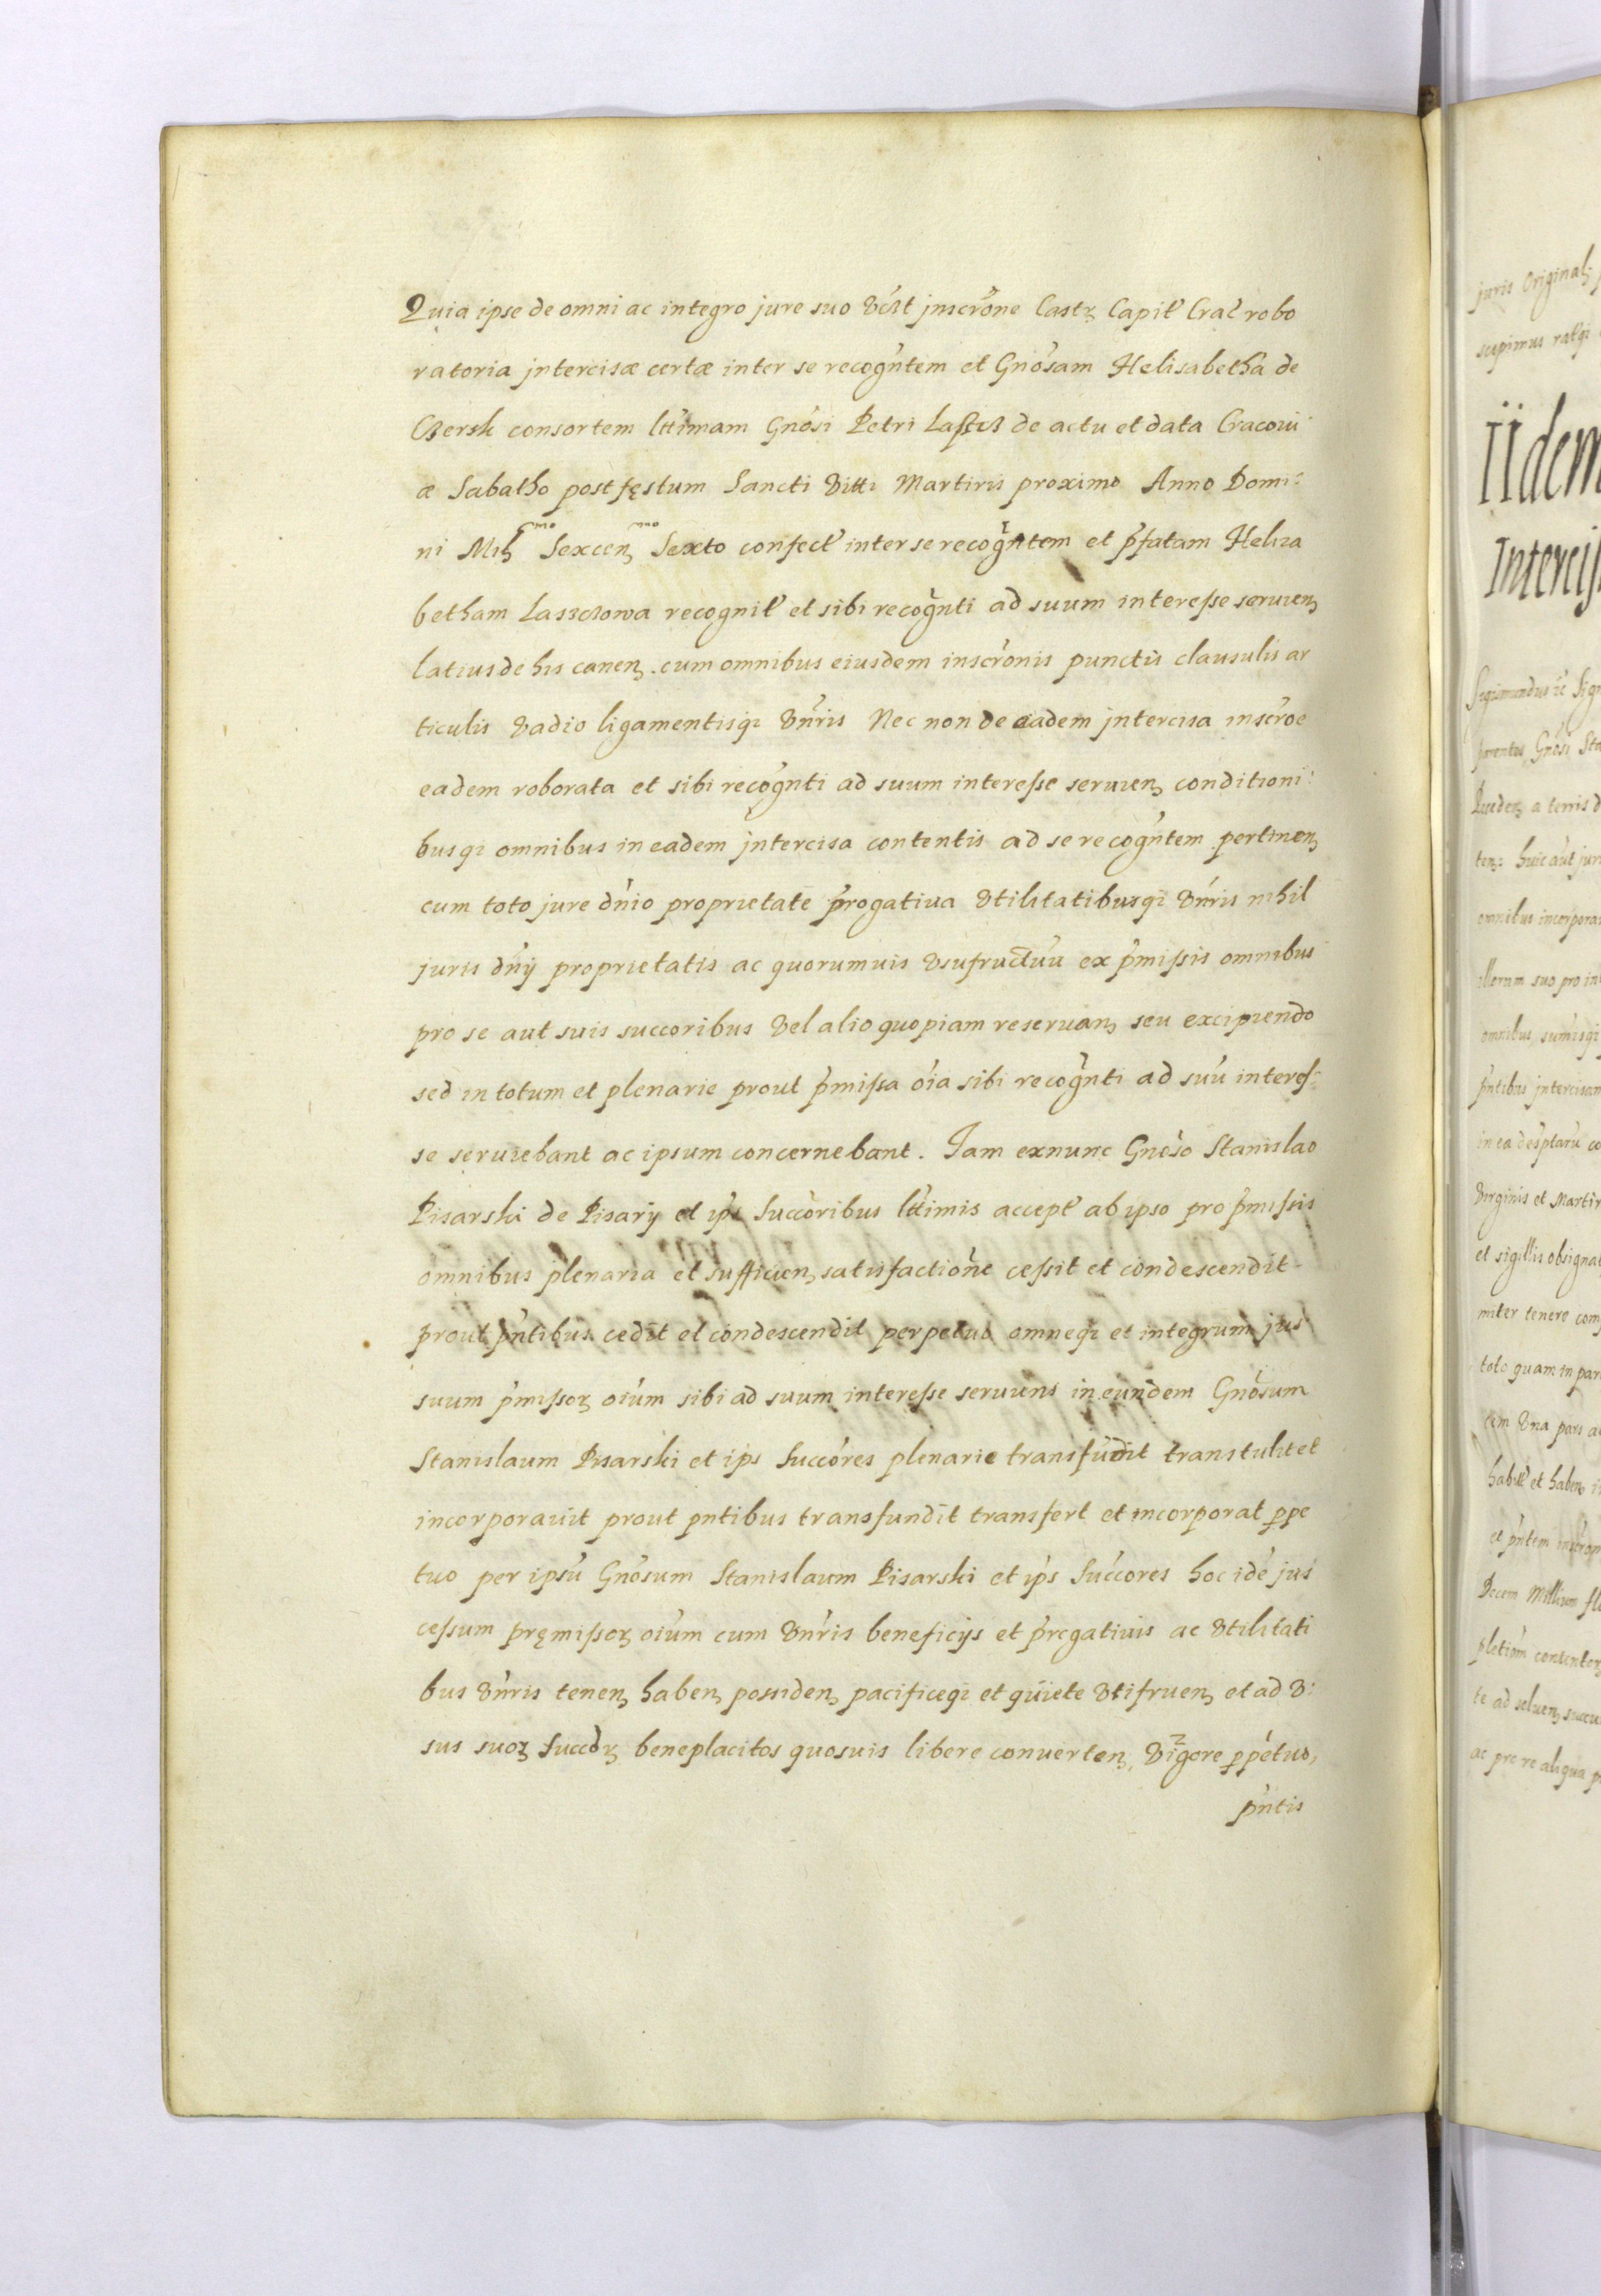 Quia ipse de omni ac integro jure suo vczt jnscrõne Castȝ Capitˡ Crac̃ robo
ratoria jntercisæ certæ inter se recogñtem et Gnõsam Helisabethã de
Czersk consortem lttimam Gnõsi Petri Laszcz de actu et data Cracovi
æ Sabatho post fęstum Sancti Vitti Martiris proximo Anno Domi:
ni Milᵐᵒ Sexcenᵐᵒ Sexto confectˡ inter se recogñtem et p̃fatam Heliza
betham Laszczowa recognitˡ et sibi recogñti ad suum interesse servienȝ
latius de his canenȝ cum omnibus eiusdem inscrõnis punctis clausulis ar
ticulis vadio ligamentisqȝ vñris Nec non de eadem jntercisa inscrõe
eadem roborata et sibi recogñti ad suum interesse servienȝ conditioni:
busqȝ omnibus in eadem jntercisa contentis ad se recogñtem pertinenȝ
cum toto jure dñio proprietate p̃rogativa vtilitatibusqȝ vñris nihil
juris dñij proprietatis ac quorumvis vsufructũũ ex p̃missis omnibus
pro se aut suis succoribus vel alio quopiam reservanȝ seu excipiendo
sed in totum et plenarie prout p̃missa õia sibi recogñti ad suũ interes:
se serviebant ac ipsum concernebant. Jam exnunc Gnõso Stanislao
Pisarski de Pisary et ip̃s Succõribus lttimis acceptˡ ab ipso pro p̃missis
omnibus plenaria et sufficienȝ satisfactiõne cessit et condescendit
prout p̃ntibus cedit et condescendit perpetuo omneqȝ et integrum jus
suum p̃missoȝ oĩum sibi ad suum interesse serviens in eundem Gnõsum
Stanislaum Pisarski et ips Succõres plenarie transfudit transtulit et
incorporavit prout pntibus transfundit transfert et incorporat ppe
tuo per ipsũ Gnõsum Stanislaum Pisarski et ip̃s Succõres hoc idẽ jus
cessum pręmissoȝ oĩum cum vñris beneficijs et p̃rogativis ac vtilitati
bus vñris tenenȝ habenȝ possidenȝ pacificeqȝ et quiete vtifruenȝ et ad v:
sus suoȝ Succõȝ beneplacitos quosvis libere convertenȝ vigore ppetuo,
p̃ntis
juris Originalȝ
scepimus ratqȝ
IIdem
Intercis
Sigismundus
parentes Gnõsi Sta
a terris d
huic aũt jur
omnibus incorpora
suo pro in
omnibus, sumisqȝ
p̃ntibus jntercisam
in ea
Virginis et Martir
et sigillis obsignat
miter tenere com
toto quam in par
cem Vna pars a
et haben
et p̃ntem inscrõn
Decem Millium fl
te ad solvenȝ
ac pro re aliqua p